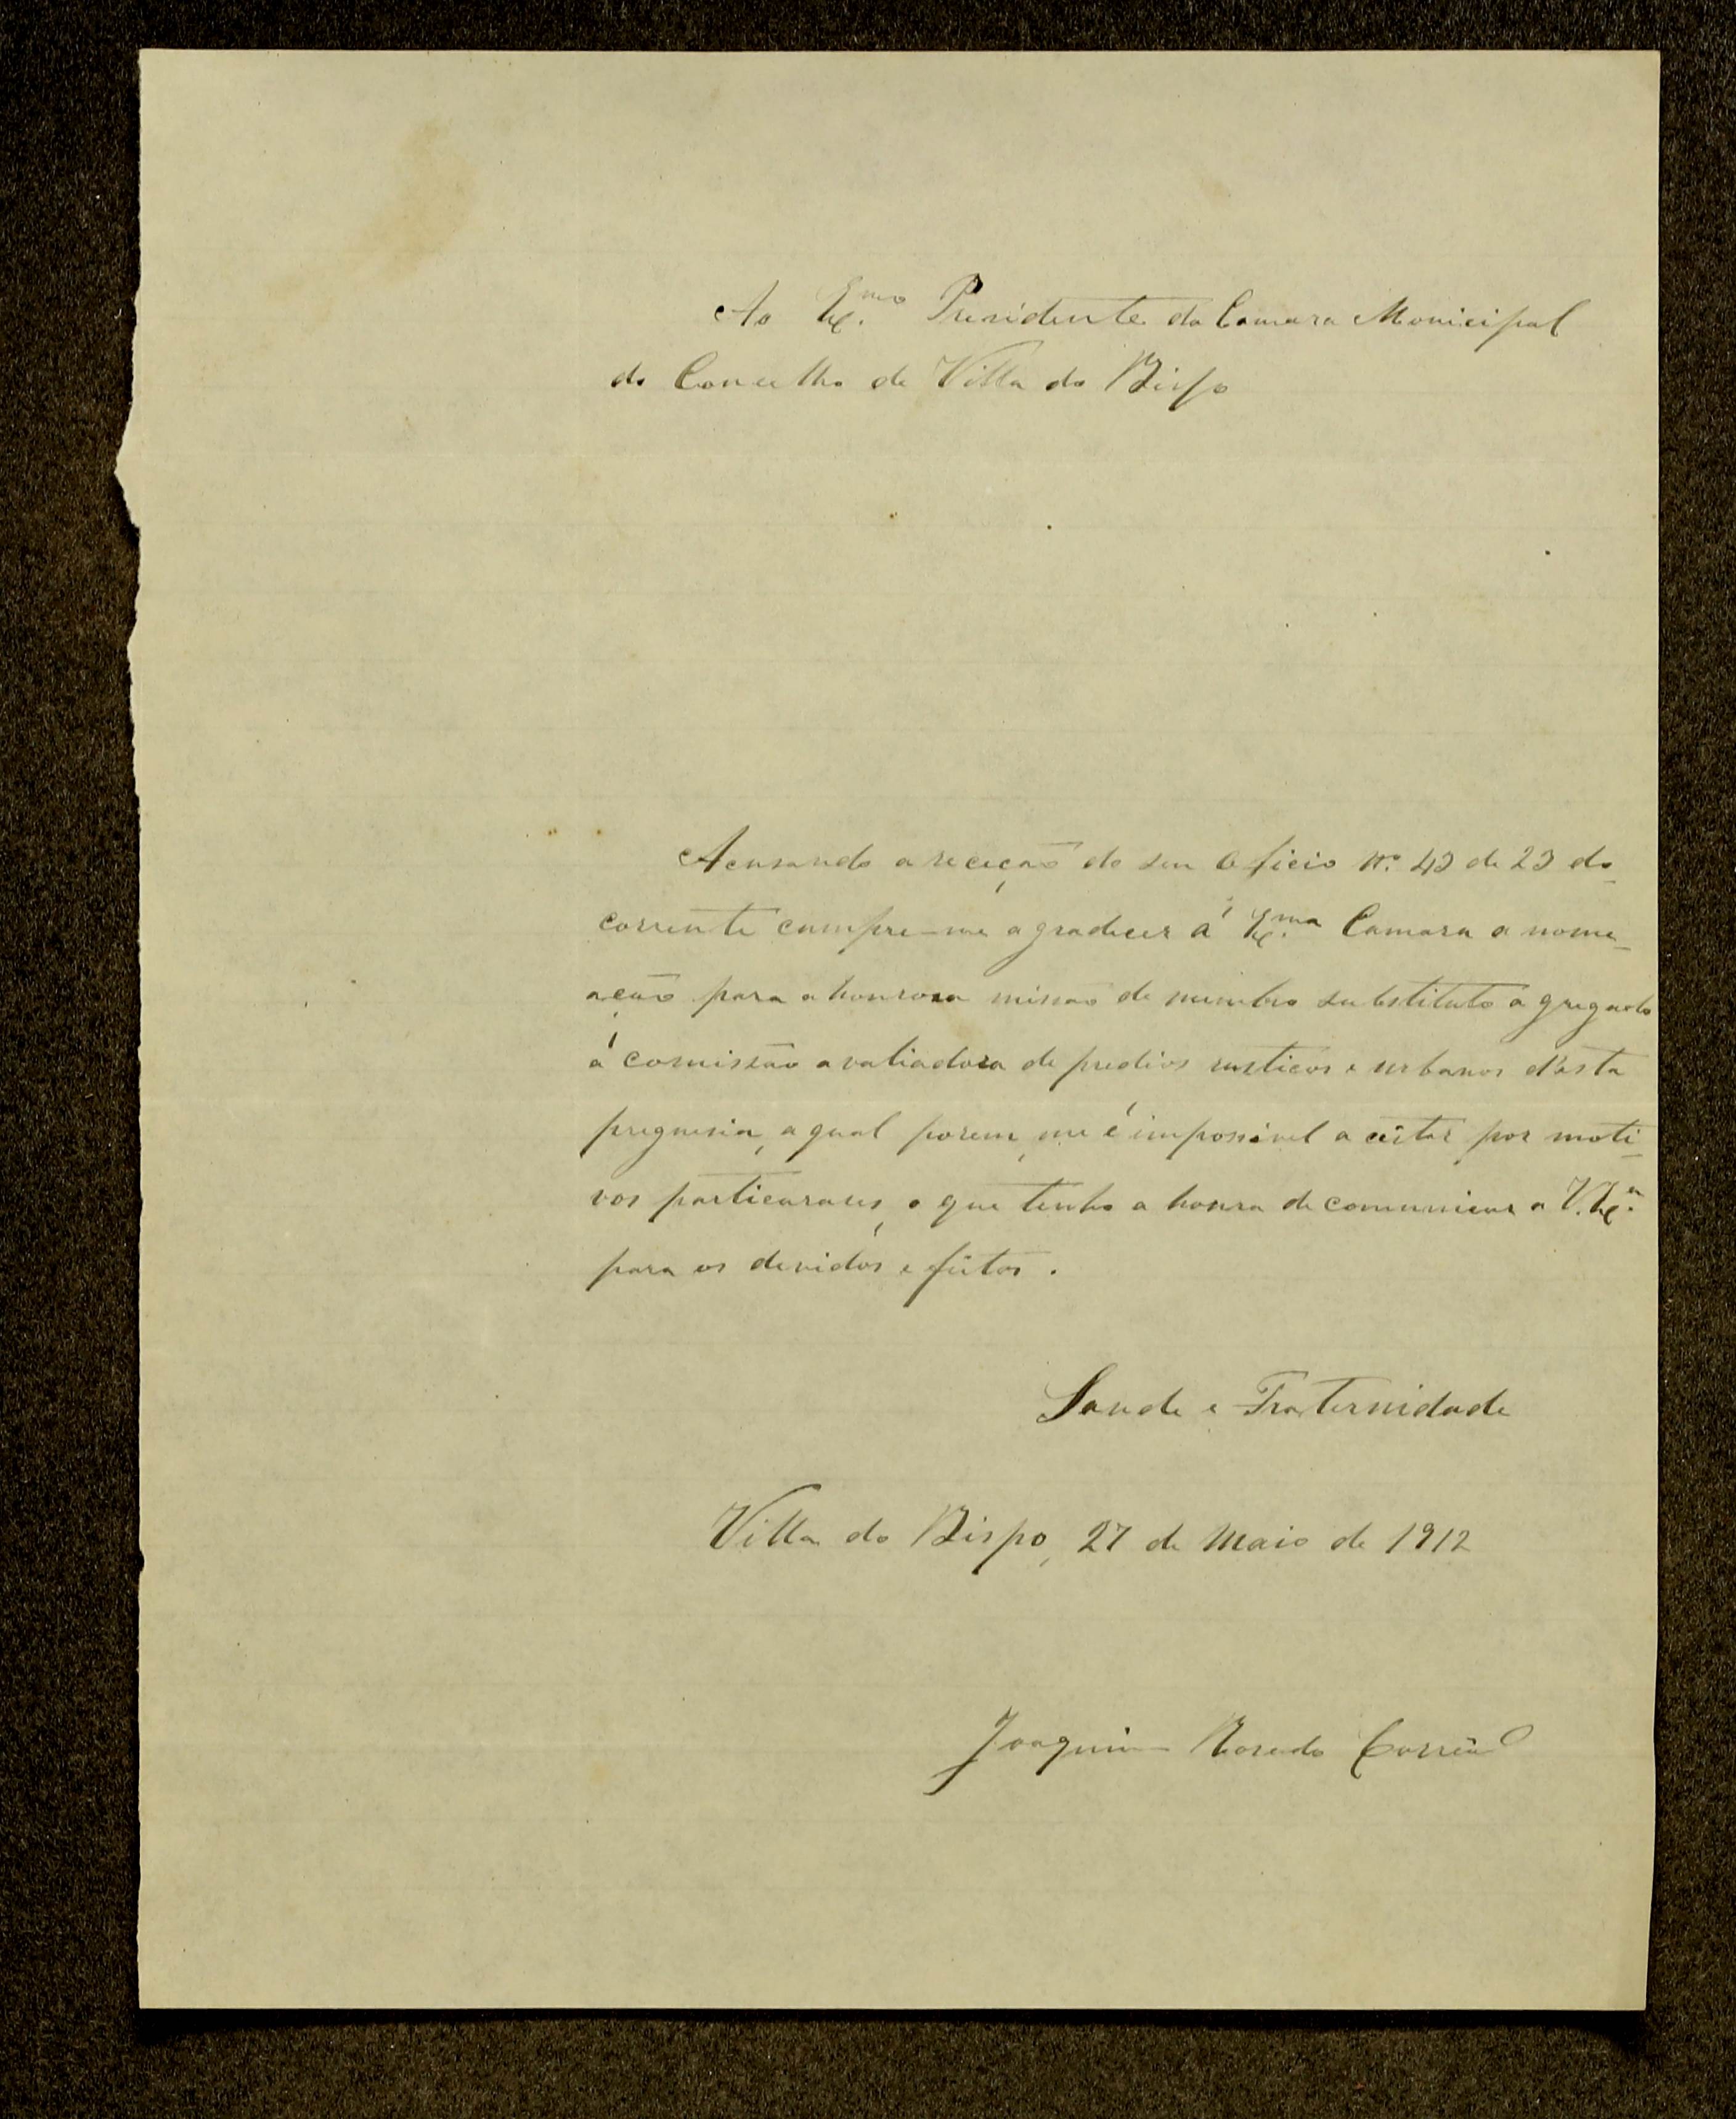 Ao Ex.mo Presidente da Camara Municipal
do Concelho de Villa do Bispo
Acusando a receção do seu Oficio n.º 43 de 23 do
corrente cumpre-me agradecer á Ex.ma Camara a nome-
ação para a honrosa missão de membro substituto agregado
á comissão avaliadora de predios rusticos e urbanos d'esta
freguesia, a qual porem, me é impossivel aceitar por moti-
vos particurares, o que tenho a honra de comunicar a V. Ex.a
para os devidos efeitos.
Saude e Fraternidade
Villa do Bispo, 27 de Maio de 1912
Joaquim Rosendo Corrêa